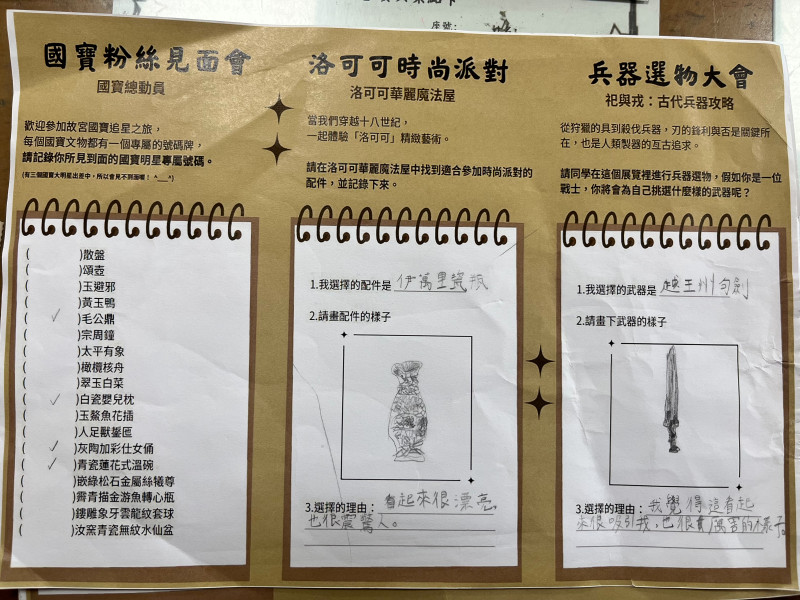 座號：
國寶粉絲見面會
國寶總動員
歡迎參加故宮國寶追星之旅，
每個國寶文物都有一個專屬的號碼牌，
請記錄你所見到面的國寶明星專屬號碼。
(有三個國寶大明星出差中，所以會見不到面喔！ ^___^)
( )散盤
( )頌壺
( )玉避邪
( )黃玉鴨
( ✓ )毛公鼎
( )宗周鐘
( )太平有象
( )橄欖核舟
( )翠玉白菜
( ✓ )白瓷嬰兒枕
( )玉鰲魚花插
( )人足獸鋬匜
( ✓ )灰陶加彩仕女俑
( ✓ )青瓷蓮花式溫碗
( )嵌綠松石金屬絲犧尊
( )霽青描金游魚轉心瓶
( )鏤雕象牙雲龍紋套球
( )汝窯青瓷無紋水仙盆
洛可可時尚派對
洛可可華麗魔法屋
當我們穿越十八世紀，
一起體驗「洛可可」精緻藝術。
請在洛可可華麗魔法屋中找到適合參加時尚派對的
配件，並記錄下來。
1.我選擇的配件是 伊萬里瓷瓶
2.請畫配件的樣子
3.選擇的理由： 看起來很漂亮
也很震驚人。
兵器選物大會
祀與戎：古代兵器攻略
從狩獵的具到殺伐兵器，刃的鋒利與否是關鍵所
在，也是人類製器的亙古追求。
請同學在這個展覽裡進行兵器選物，假如你是一位
戰士，你將會為自己挑選什麼樣的武器呢？
1.我選擇的武器是 越王州句劍
2.請畫下武器的樣子
3.選擇的理由： 我覺得這看起
來很吸引我，也很厲害的樣子。